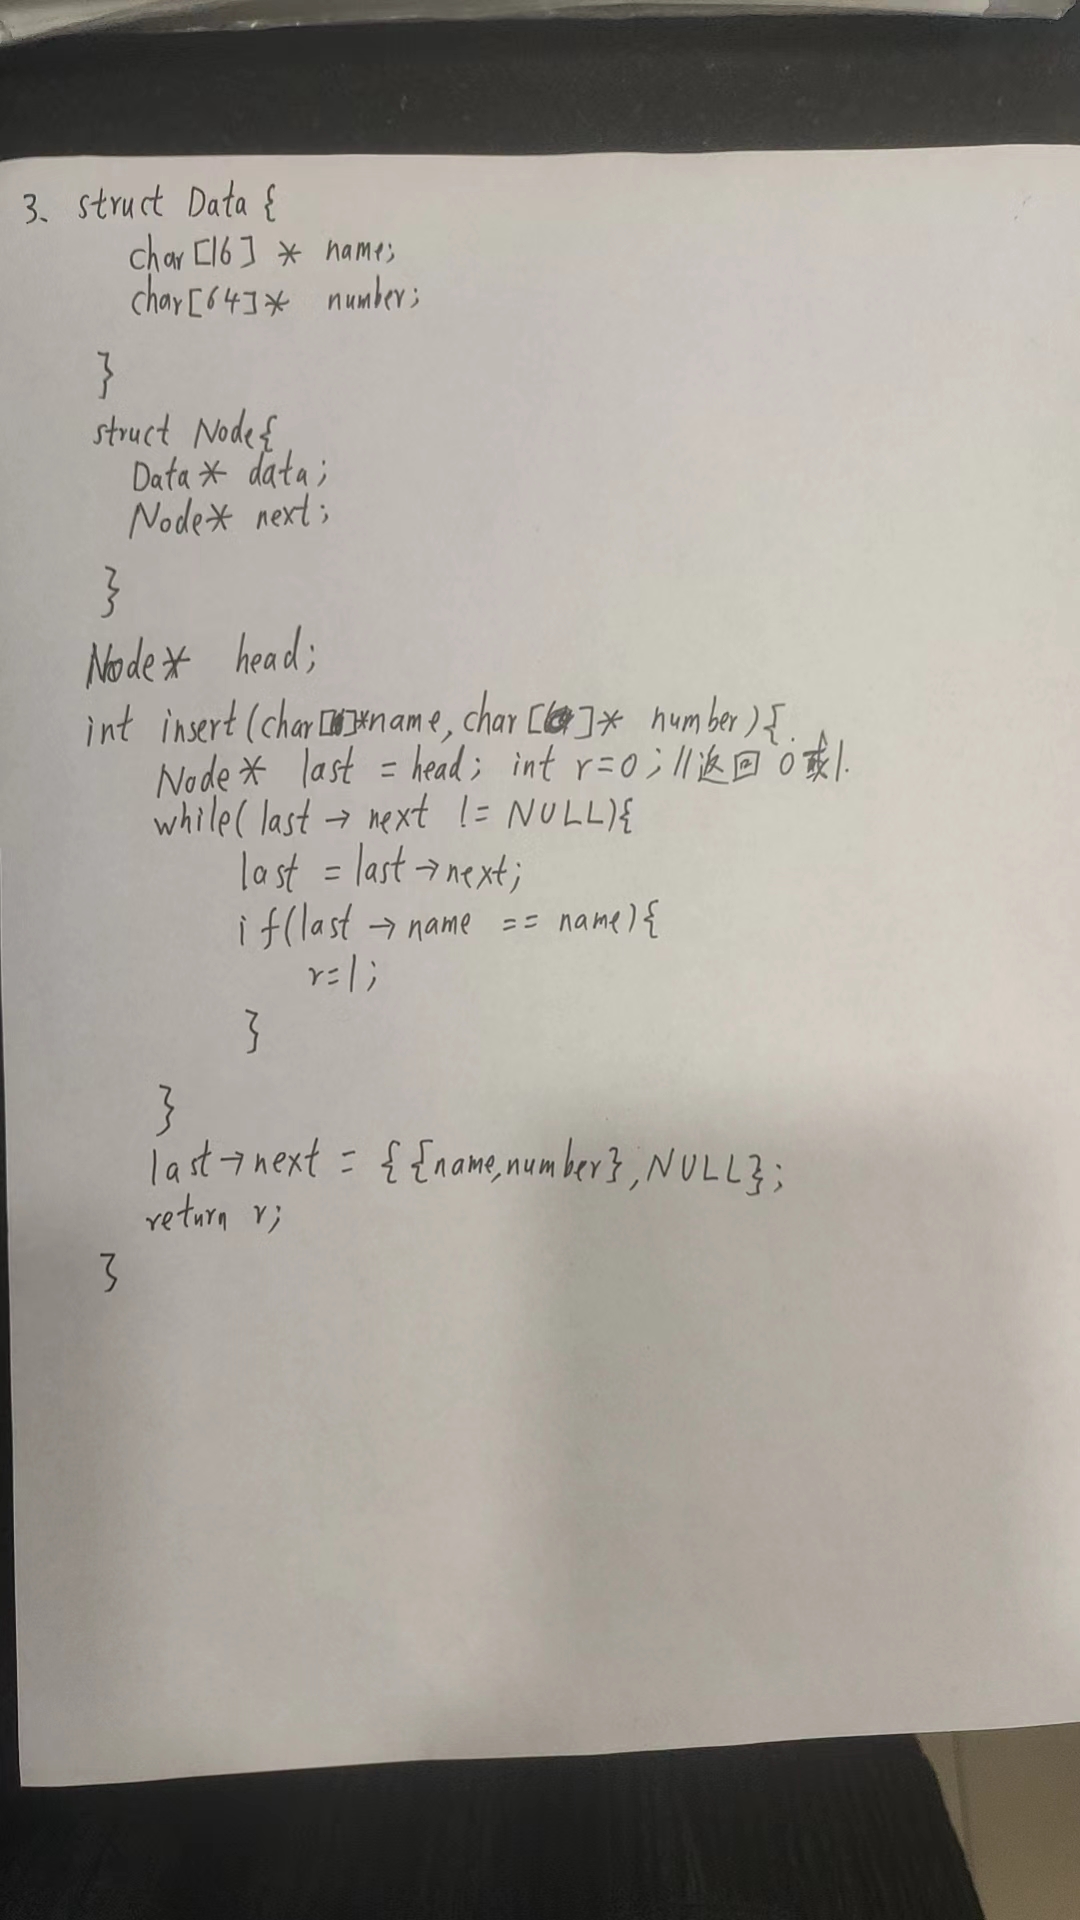 3、struct Data {
char [16] * name;
char [64] * number;
}
struct Node {
Data * data;
Node * next;
}
Node * head;
int insert (char [] * name, char [] * number) {
Node * last = head; int r = 0; // 返回 0 或 1.
while (last → next != NULL) {
last = last → next;
if (last → name == name) {
r = 1;
}
}
last → next = { {name, number}, NULL };
return r;
}